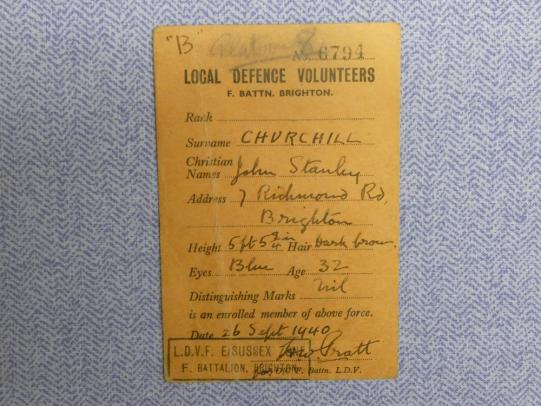 "B" Platoon 8
No. 6794
LOCAL DEFENCE VOLUNTEERS
F. BATTN. BRIGHTON.
Rank
Surname CHURCHILL
Christian Names John Stanley
Address 7 Richmond Rd,
Brighton
Height 5ft 5¾in Hair Dark brown.
Eyes Blue Age 32
Distinguishing Marks Nil
is an enrolled member of above force.
Date 26 Sept 1940
Pratt
L.D.V.F. E/SUSSEX ZONE
F. BATTALION, BRIGHTON
for O/C F. Battn. L.D.V.